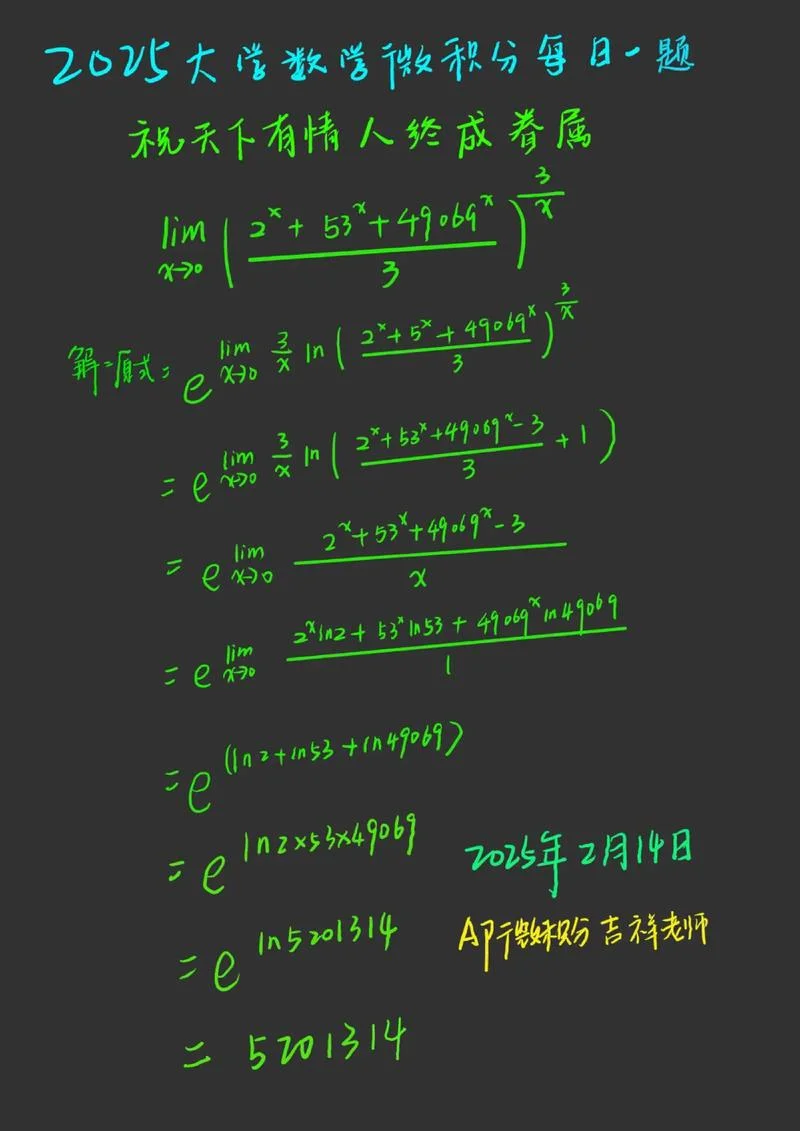 2025大学数学微积分每日一题
祝天下有情人终成眷属
lim x→0 ( (2^x + 53^x + 49069^x) / 3 )^(3/x)
解:原式= e^(lim x→0 3/x ln( (2^x + 5^x + 49069^x) / 3 )^(3/x))
= e^(lim x→0 3/x ln( (2^x + 53^x + 49069^x - 3) / 3 + 1 ))
= e^(lim x→0 (2^x + 53^x + 49069^x - 3) / x)
= e^(lim x→0 (2^x ln2 + 53^x ln53 + 49069^x ln49069) / 1)
= e^(ln2 + ln53 + ln49069)
= e^(ln2×53×49069)
2025年2月14日
= e^(ln5201314)
AP微积分 吉祥老师
= 5201314